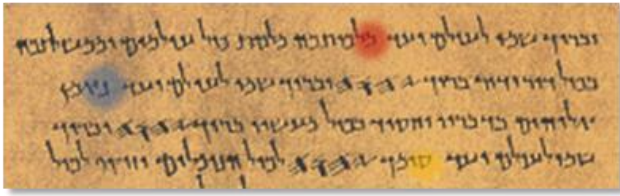 וברוך שמו לעולם ועד מלכותכה מלכות כול עולמים וממשלתכה
בכול דור ודור ברוך 𐤉𐤄𐤅𐤄 וברוך שמו לעולם ועד נאמן
אלוהים בדבריו וחסיד בכול מעשיו ברוך 𐤉𐤄𐤅𐤄 וברוך
שמו לעולם ועד סומך 𐤉𐤄𐤅𐤄 לכול הנופלים וזוקף לכול